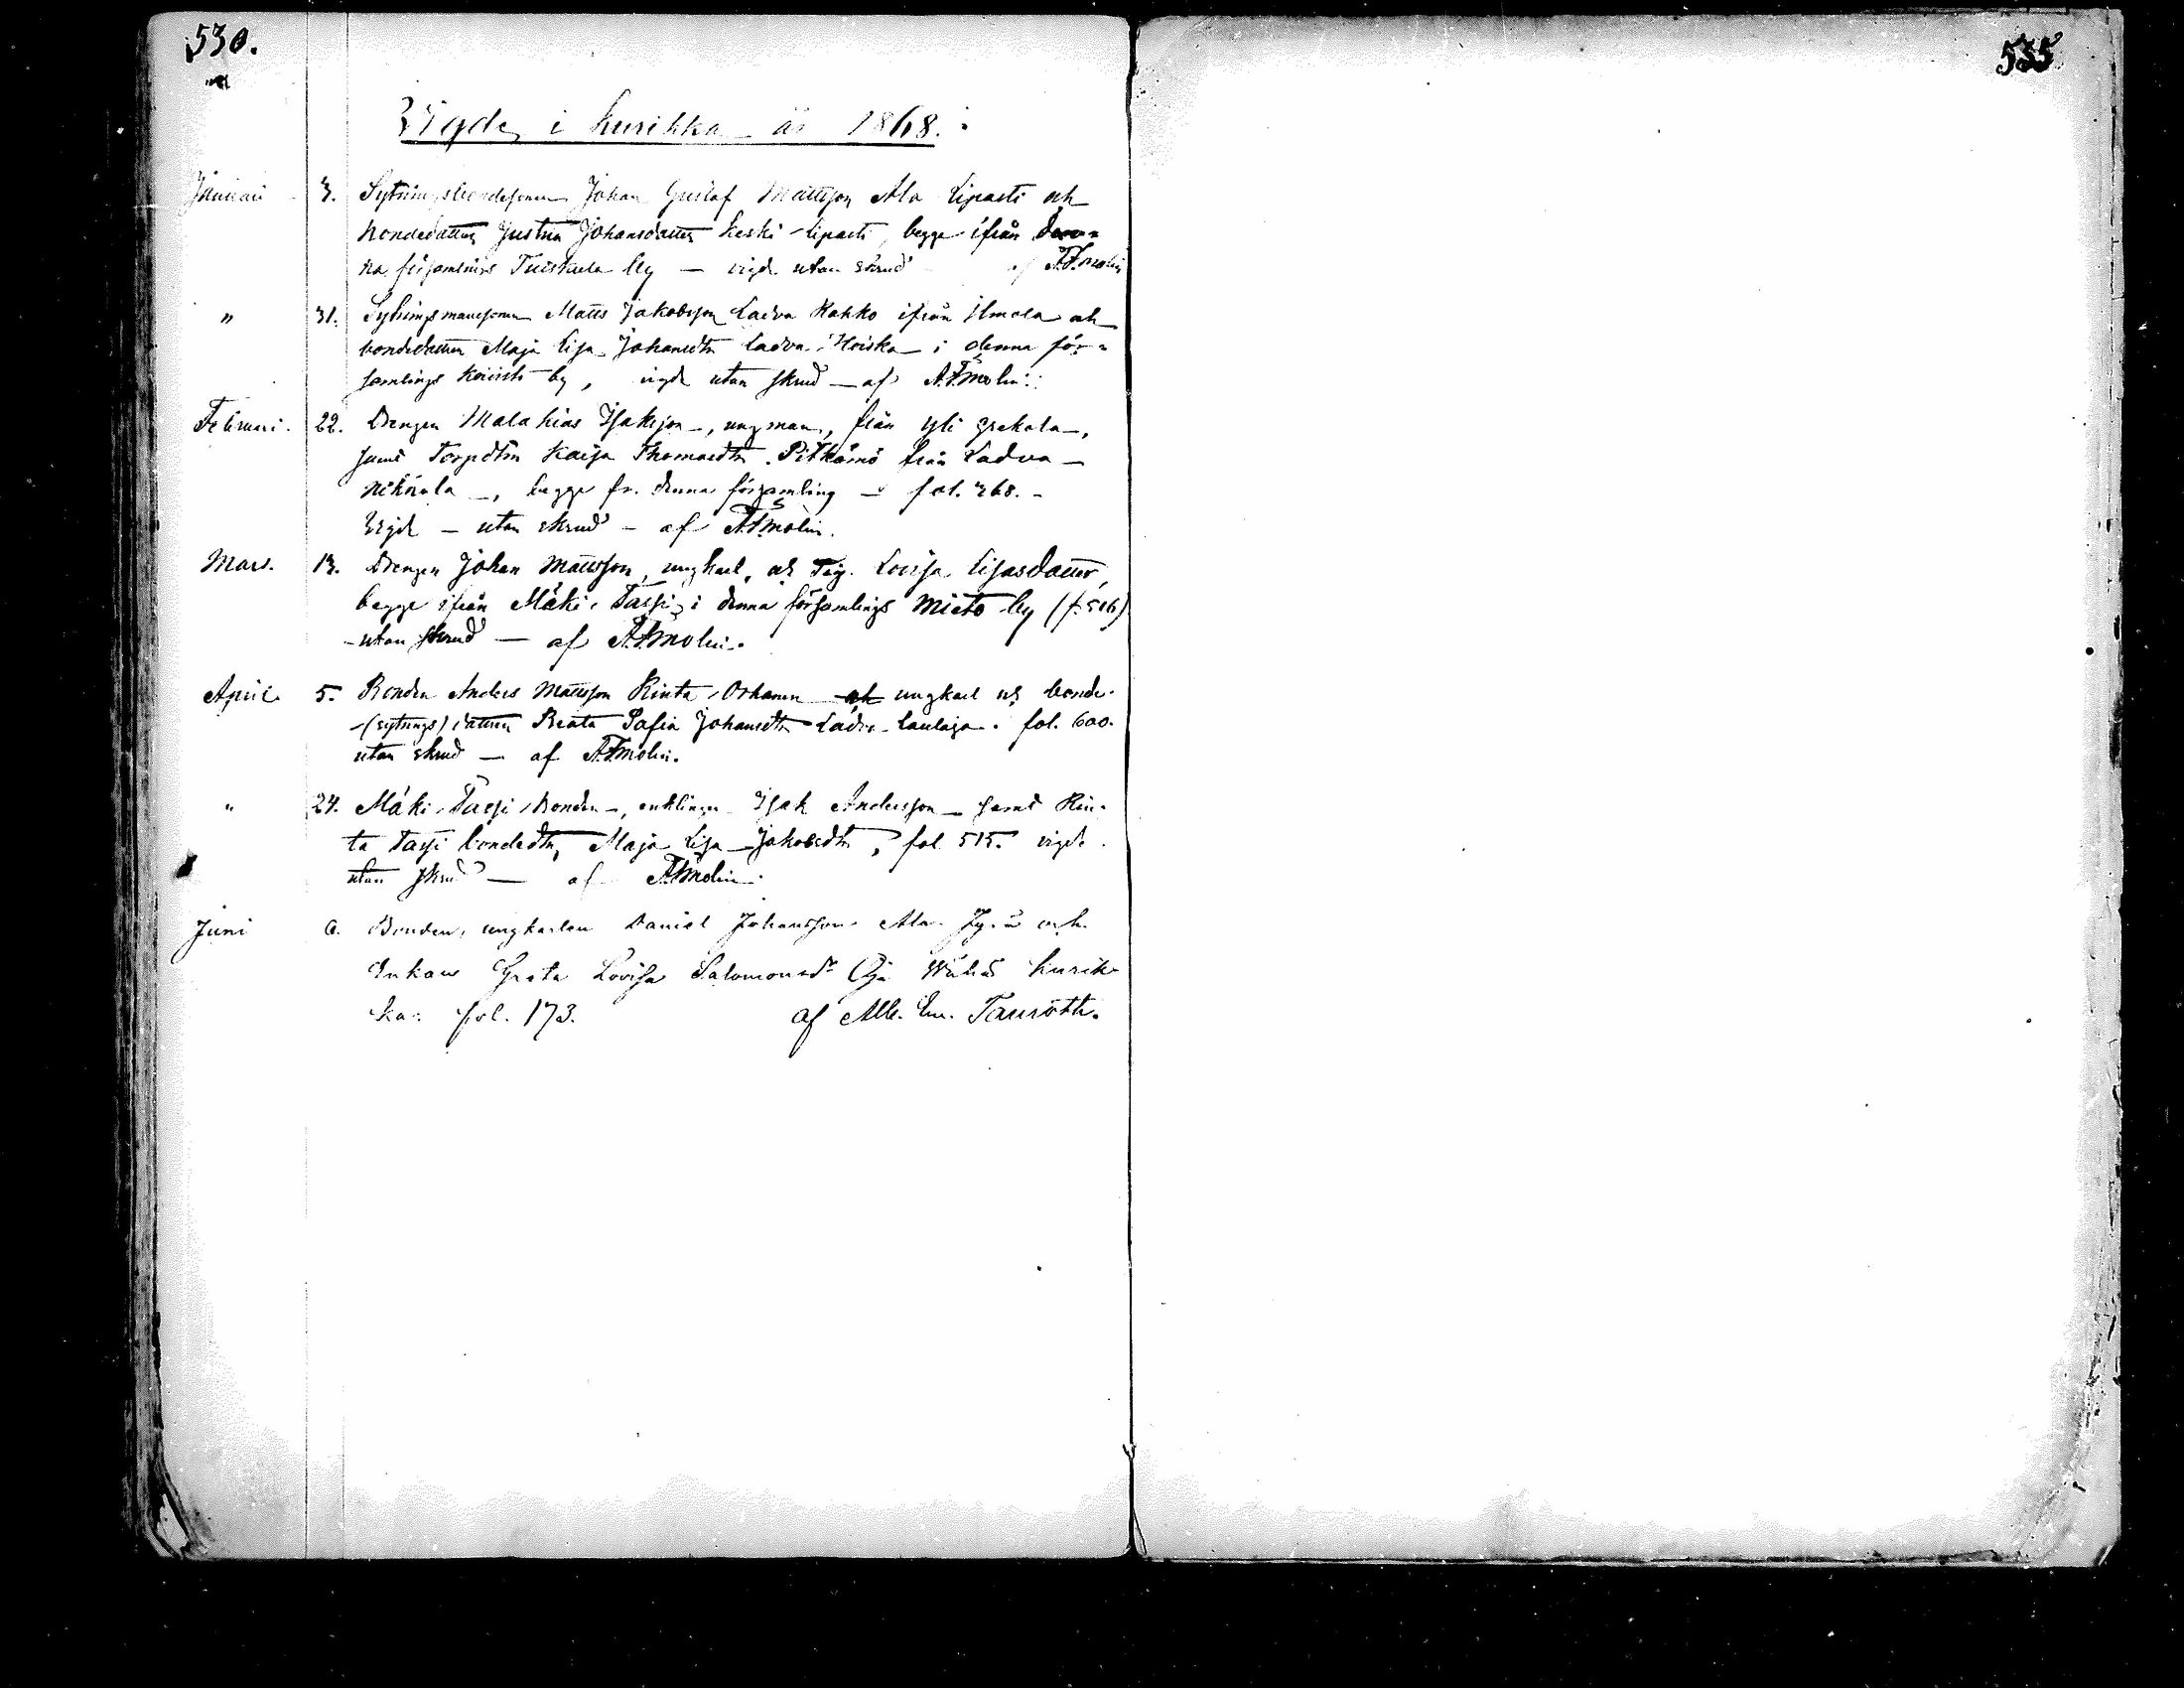 530.
535
Vigde i Kurikka år 1868.
Januari 3. Sytningsbondesonen Johan Gustaf Mattsson Ala Lipasti och
bondedattren Justina Johansdatter Keski-Lipasti, begge ifrån den-
na församlings Tuiskula by — vigde utan skrud af A.F.Molin
" 31. Sytningsmanssonen Matts Jakobsson Ladva Rahko ifrån Ilmola och
bondedattren Maja Lisa Johansdtr Ladva-Hoiska i denna för-
samlings Koivisto by, vigde utan skrud — af A.F.Molin.
Februari. 22. Drengen Malakias Isaksson, ungman, från Yli
samt Torpdtrn Kaisa Thomasdtr. Pitkämö från Ladva
, begge fr. denna församling — fol. 368. -
Vigde — utan skrud — af A.F.Molin.
Mars. 13. Drengen Johan Mattsson, ungkarl, och Pig. Lovisa Lisasdatter,
begge ifrån Mäki-Tassi, i denna församlings Mieto by (f. 516)
- utan skrud — af A.F.Molin.
April 5. Bonden Anders Mattsson Rinta-Orhanen och ungkarl och bonde-
(sytnings)dattren Beata Sofia Johansdtr Ladva-Laulaja. fol. 600.
utan skrud — af A.F.Molin.
" 24. Mäki-Tassi bonden, enklingen Isak Andersson — samt Rin-
ta Tassi bondedtrn, Maja Lisa Jakobsdtr, fol. 515. vigde
utan skrud — af A.F.Molin.
Juni 6. Bonden, ungkarlen Daniel Johansson Ala och
Enkan Greta Lovisa Salomonsdr Oja Kurik-
ka. fol. 173. af Alb. Em. Taurôth.